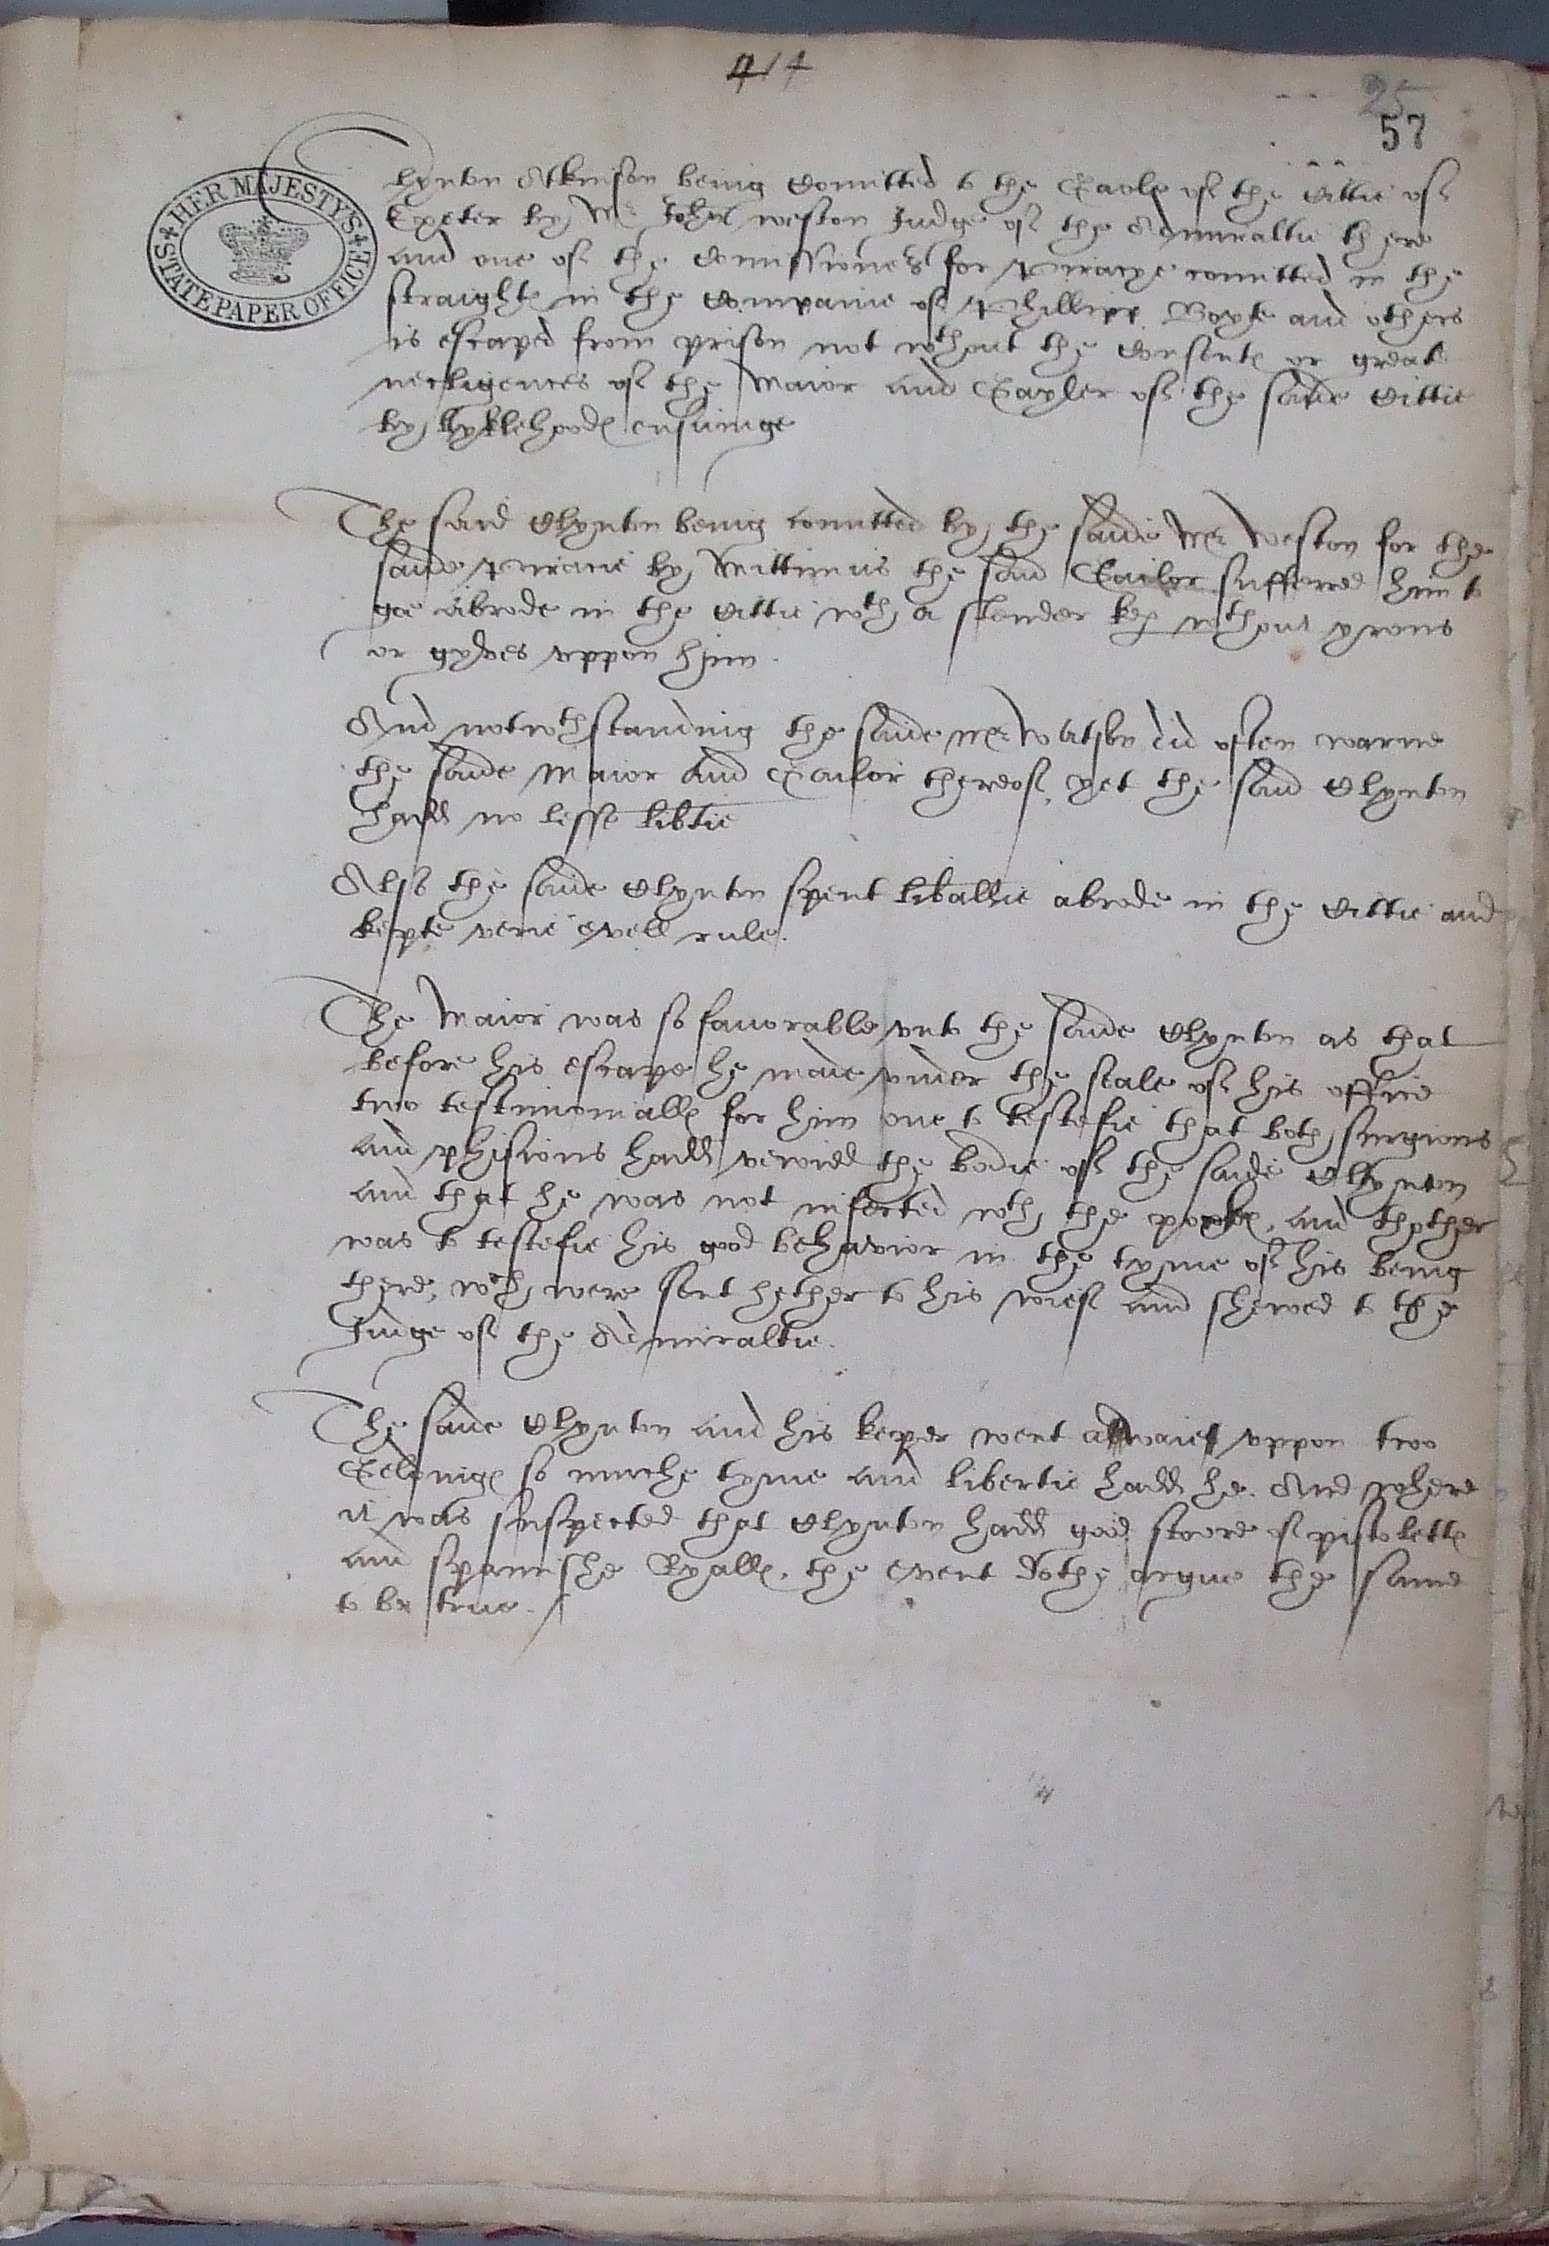 414
25
57
HER MAJESTY'S STATE PAPER OFFICE
Clynton Atkinson being Comitted to the Gaole of the Cittie of
Exeter by Mr John Weston Judge of the Admiraltie there
and one of the Comissioners for Piracye comitted in the
straightes in the Companie of Phillipp Boyte and others
is escaped from prison not wthout the Consente or great
necligences of the Maior and Gayler of the same Cittie
by lyklehoodes ensuinge
The said Clynton being comitted by the saide Mr Weston for the
saide Piracie by Mittimus the said Gailor suffered him to
goe abrode in the Cittie wth a slender keper wthout yrons
or gyves vppon him.
And notwthstanding the saide Mr Watson did often warne
the saide Maior and Gailor thereof, yet the said Clynton
hadd no lesse libtie
Also the saide Clynton spent liballie abrode in the Cittie and
kepte verie evell rule.
The Maior was so favorable vnto the saide Clynton as that
before his escape he made vnder the seale of his office
two testimonialles for him one to testefie that both surgions
and phisicions hadd vewedd the bodie of the saide Clynton
and that he was not infected wth the pockes, and thother
was to testefie his good behavior in the tyme of his being
there, wch were sent hether to his wief and shewed to the
Judge of the Admiraltie.
The saide Clynton and his keper went awaie vppon two
Geldinges so muche tyme and libertie hadd he. And where
it was suspected that Clynton hadd good stoore of pistolettes
and spanishe Ryalles, the event dothe argue the same
to be true.